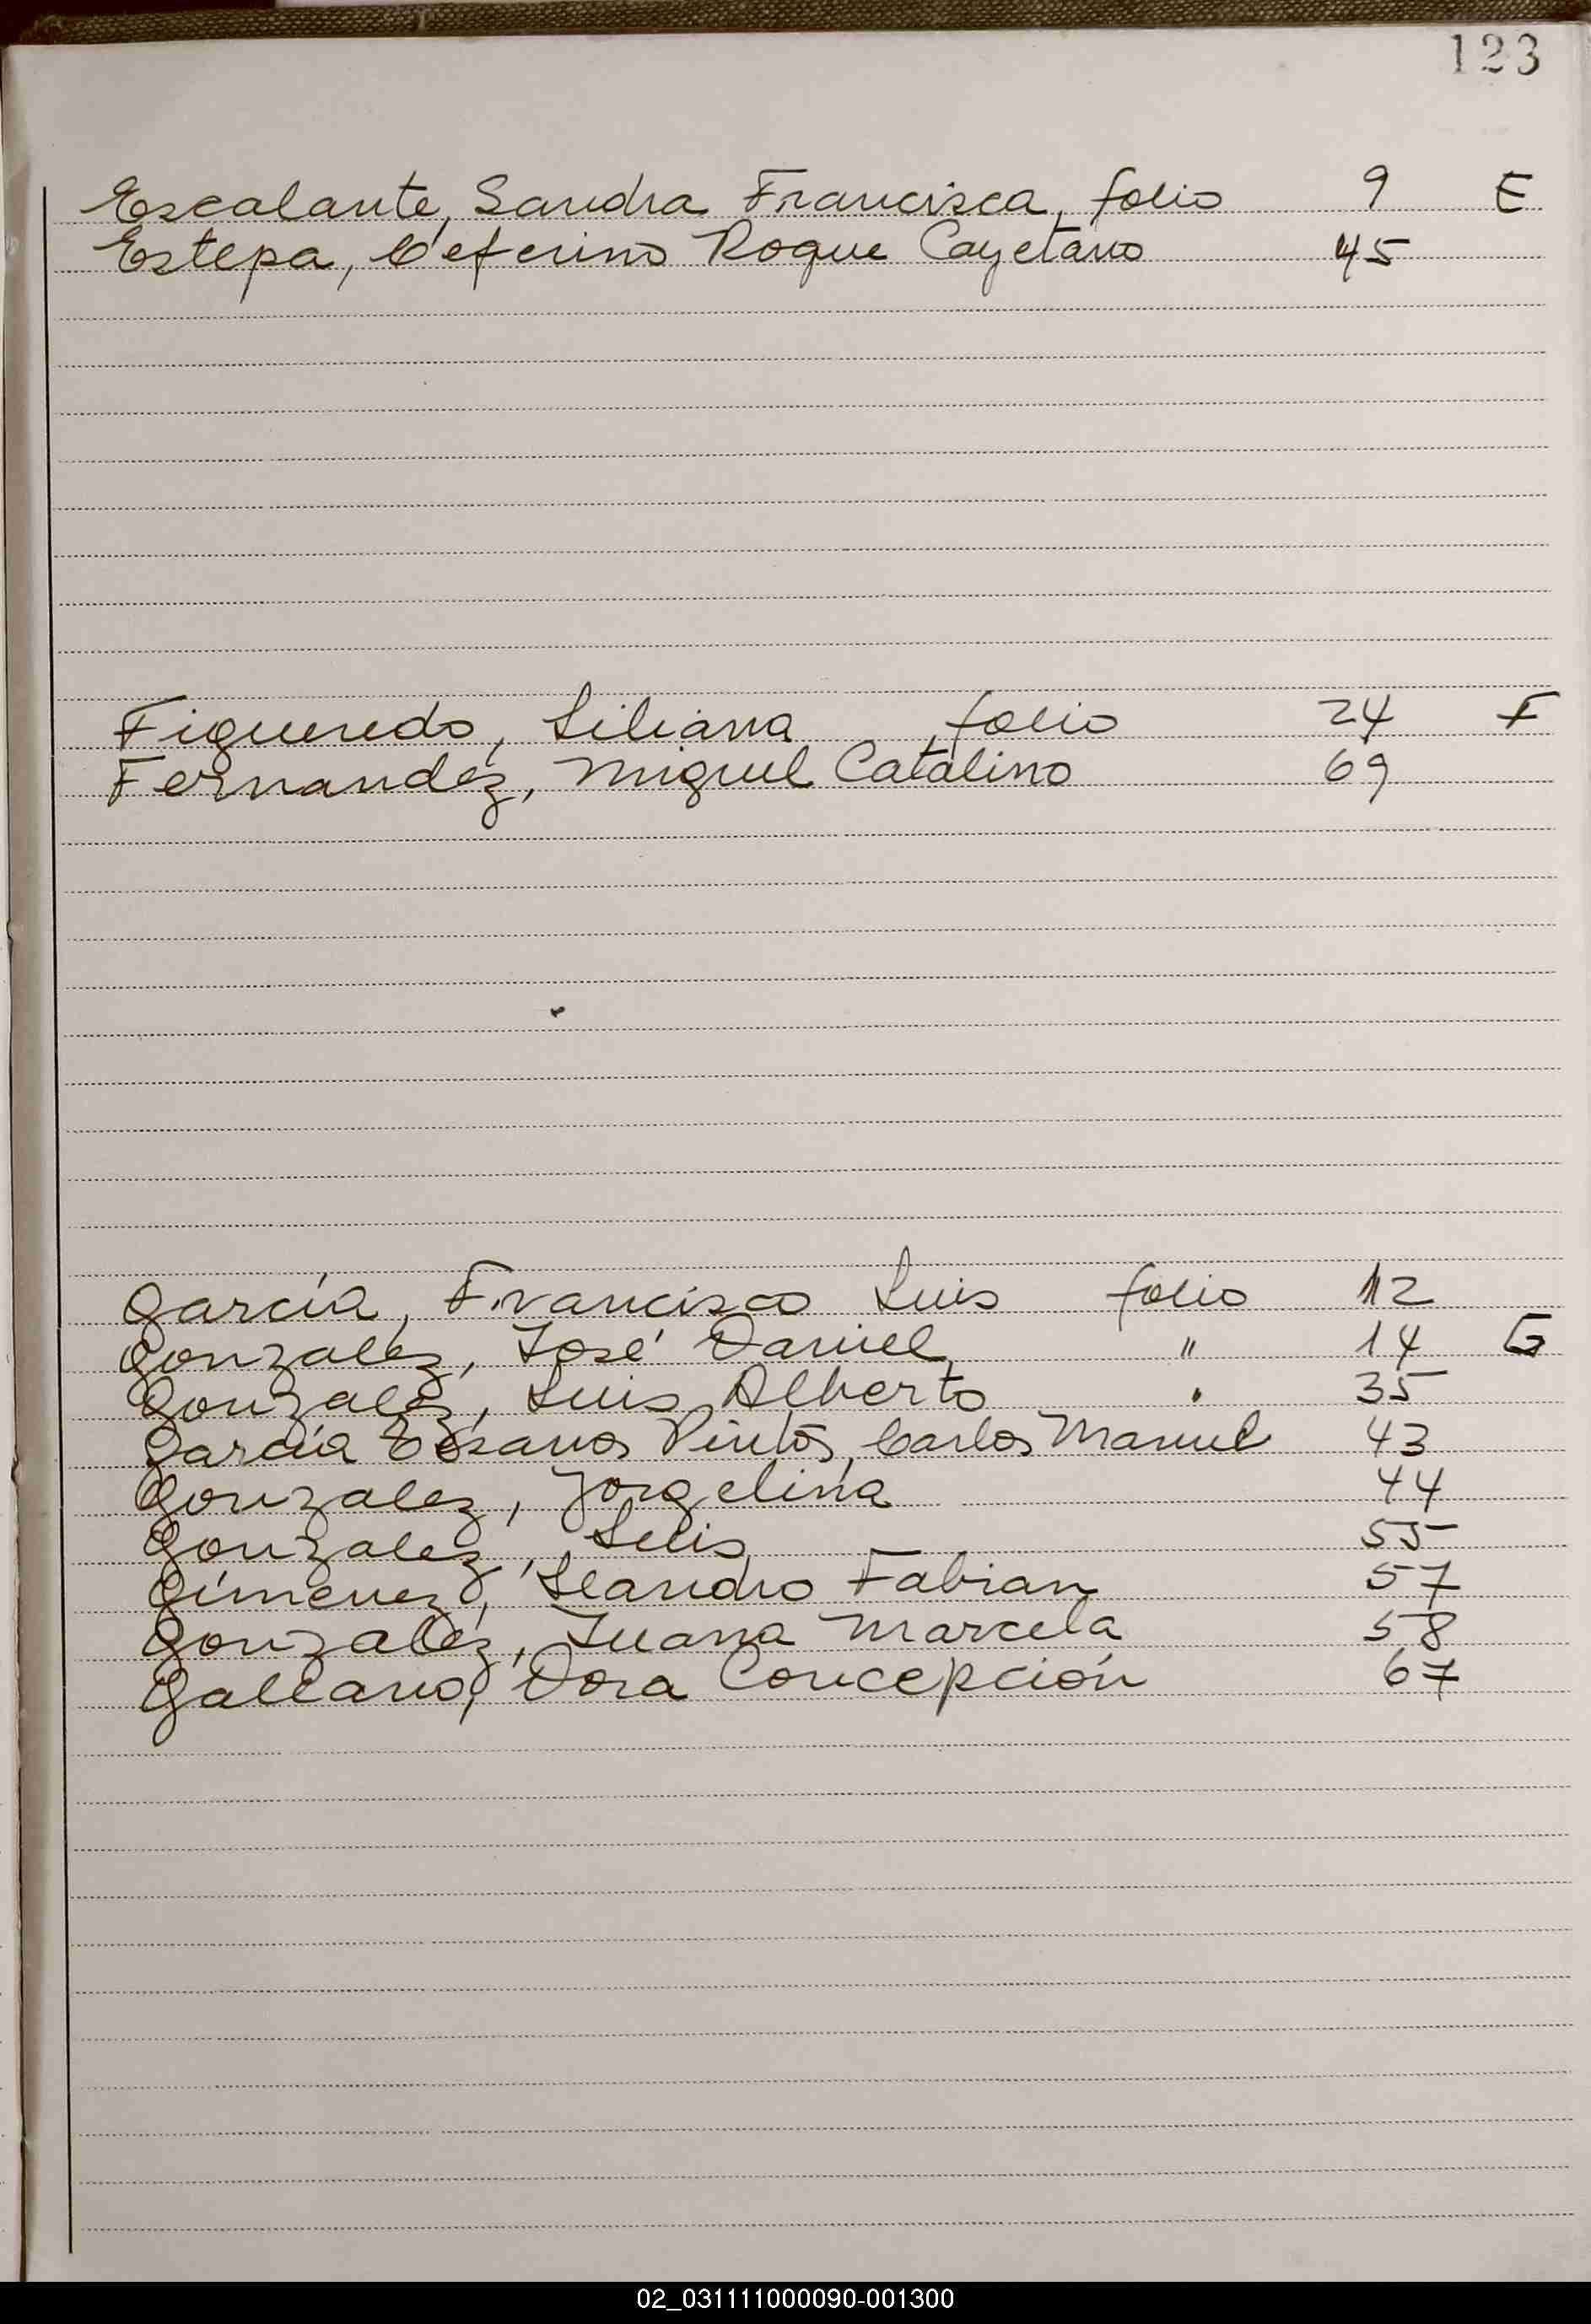 123
Escalante, Sandra Francisca, folio 9 E
Estepa, Ceferino Roque Cayetano 45
Figueredo, Liliana, folio 24 F
Fernandez, Miguel Catalino 69
García, Francisco Luis folio 12
Gonzalez, José Daniel " 14 G
Gonzalez, Luis Alberto " 35
García Pintos, Carlos Manuel 43
Gonzalez, Jorgelina 44
Gonzalez, Luis 55
Gímenez, Leandro Fabian 57
Gonzalez, Juana Marcela 58
Galeano, Dora Concepción 67
02_031111000090-001300